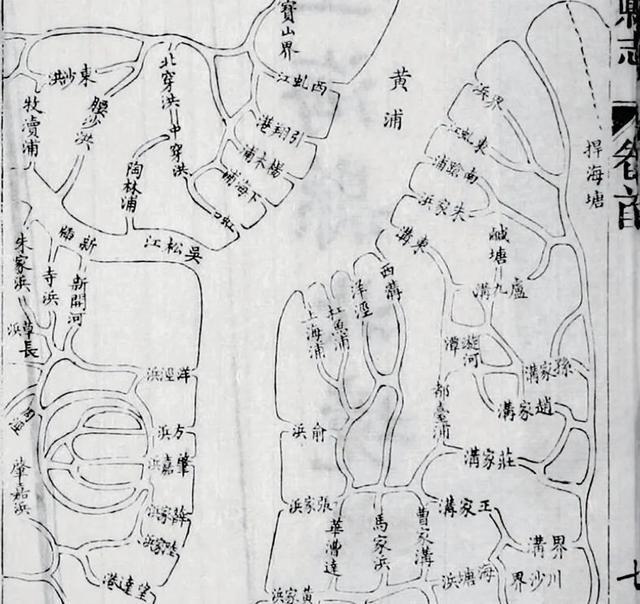 縣志
卷首
七
捍海塘
黃浦
寶山界
西虬江
引翔港
楊木浦
下海浦
虹口
北穿洪
中穿洪
東沙洪
牧瀆浦
腰沙洪
陶林浦
吳松江
新
新開河
寺浜
朱家浜
長
洋涇浜
方浜
肇嘉浜
肇嘉浜
薛家浜
陸家浜
望達港
上海浦
杠魚浦
洋涇
西溝
東溝
朱家浜
南蹌浦
東虬江
浜
鹹塘
盧九溝
漩河潭
都臺浦
孫家溝
趙家溝
莊家溝
王家溝
界溝
川沙界
海塘浜
曹家溝
馬家浜
華漕達
張家浜
俞浜
黃家浜